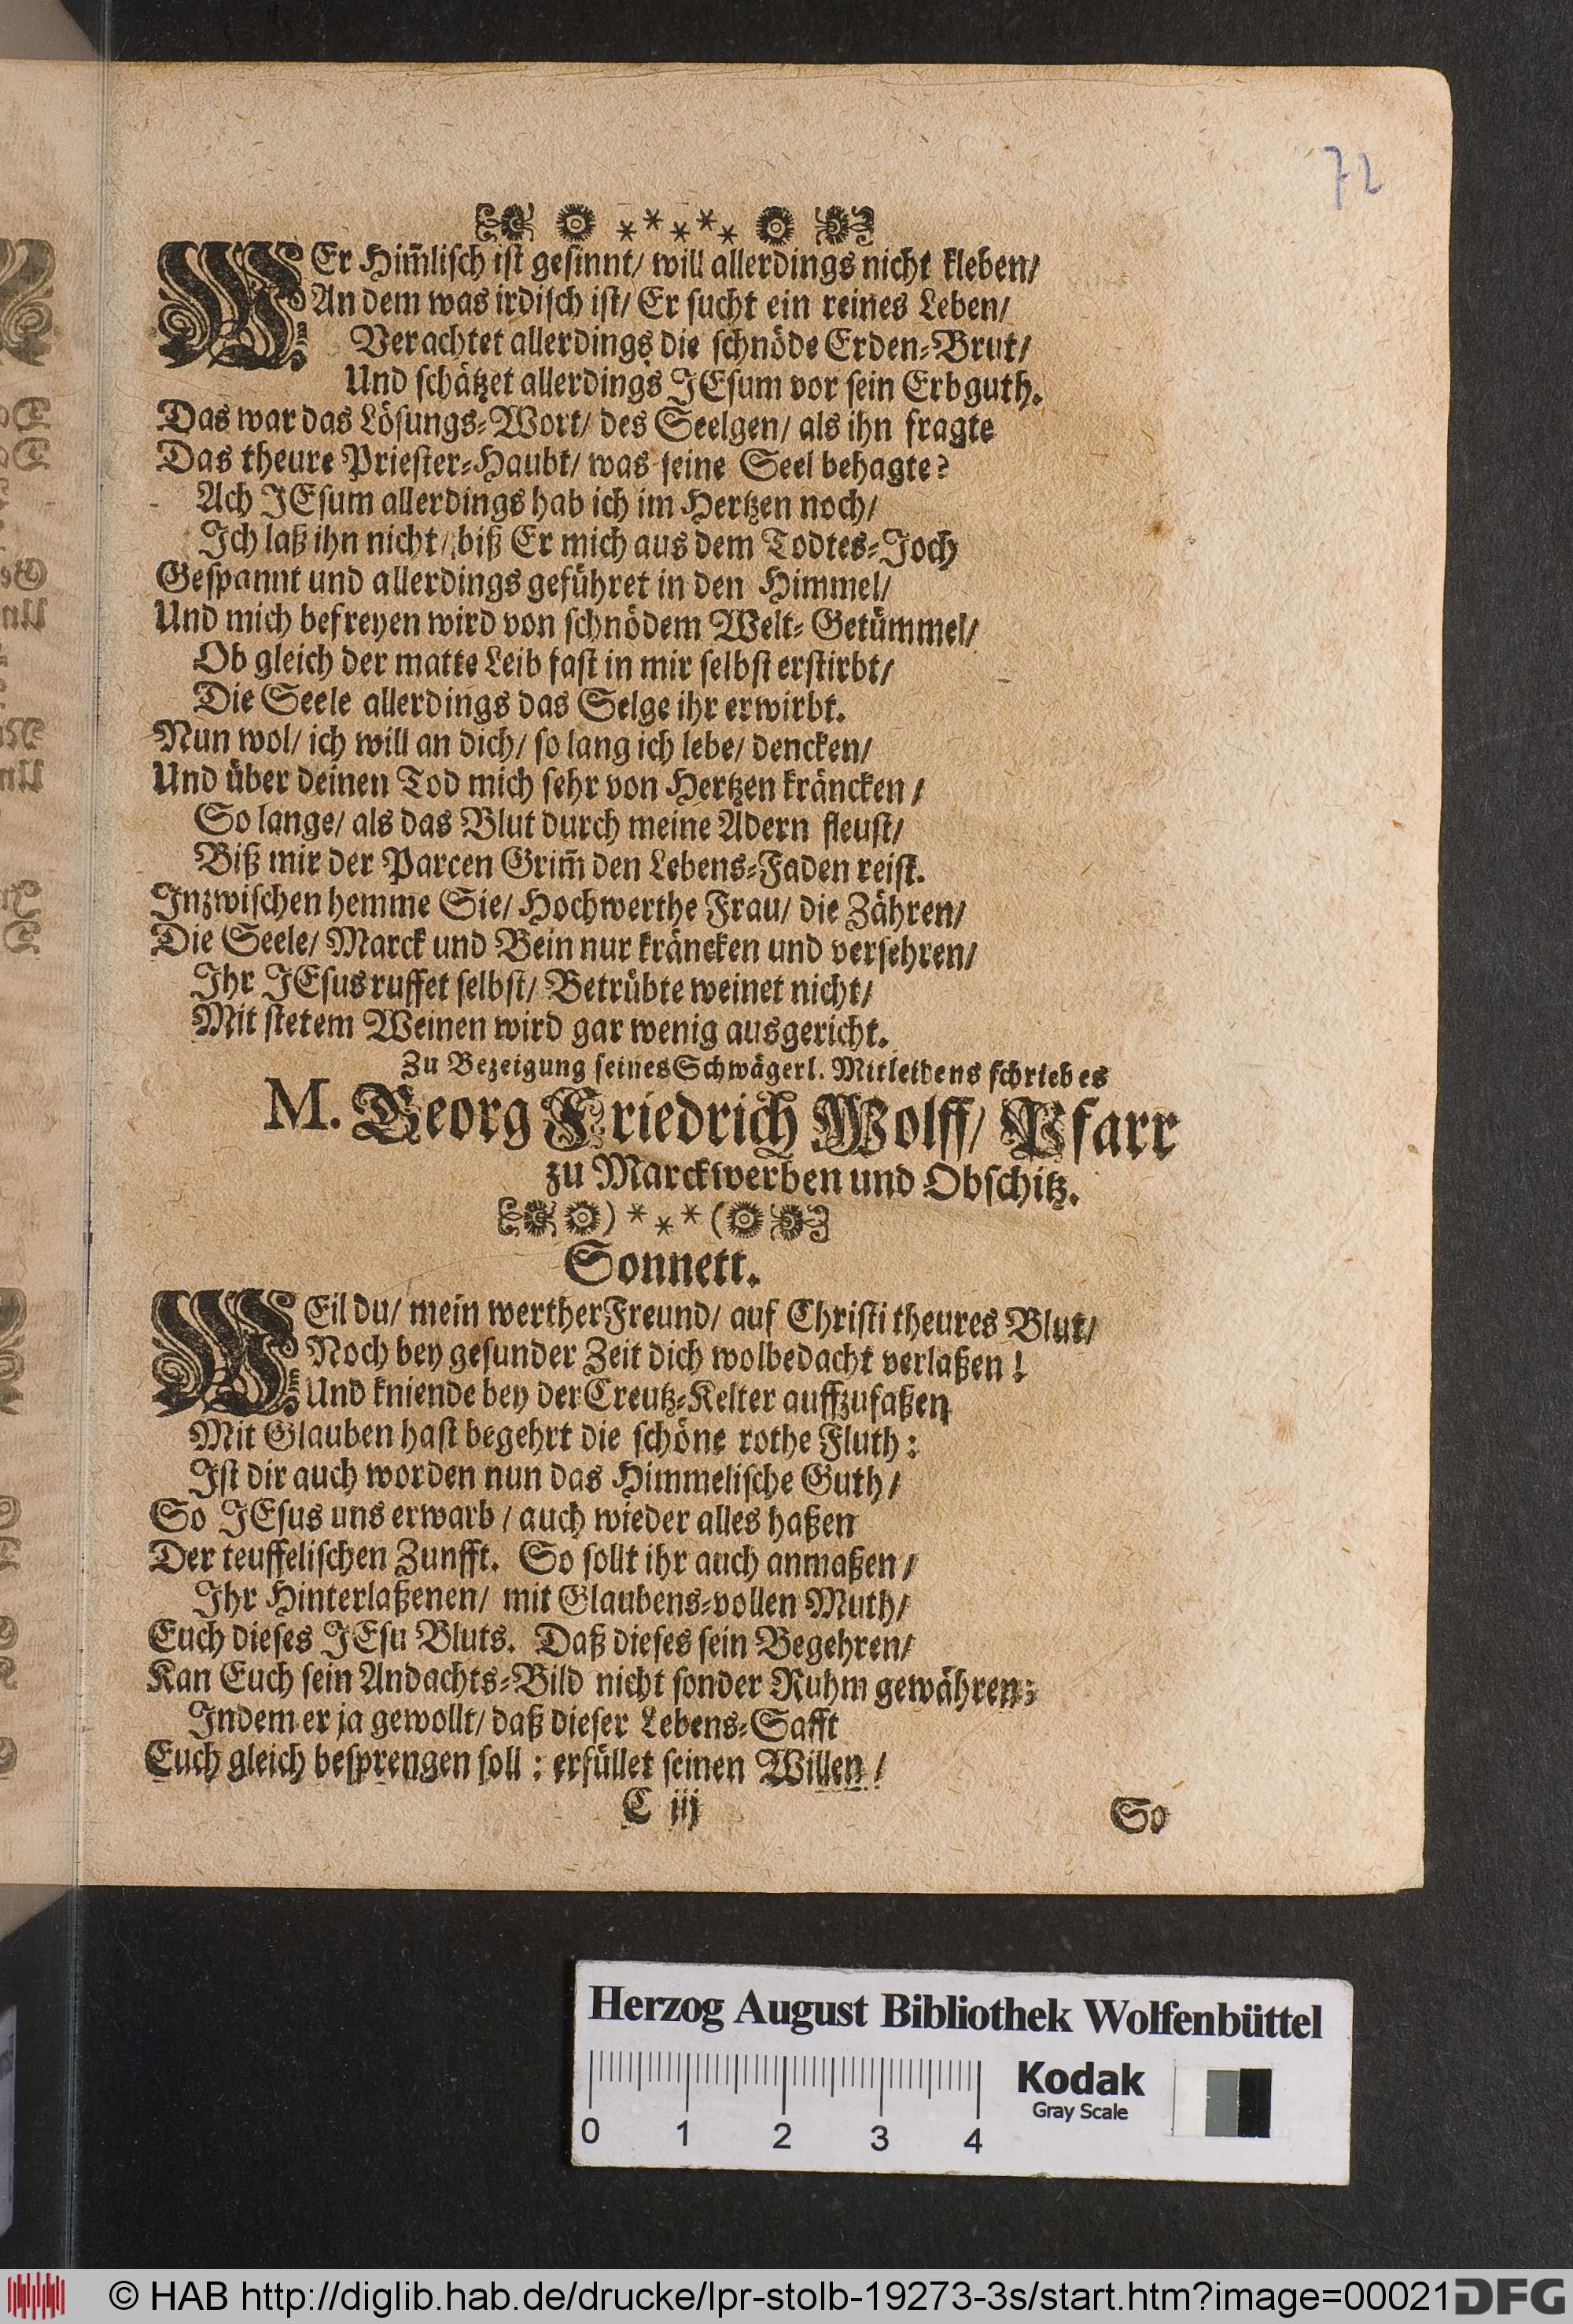 72
WEr Him̃lisch ist gesinnt/ will allerdings nicht kleben/
An dem was irdisch ist/ Er sucht ein reines Leben/
Verachtet allerdings die schnöde Erden-Brut/
Und schätzet allerdings JEsum vor sein Erbguth.
Das war das Lösungs-Wort/ des Seelgen/ als ihn fragte
Das theure Priester-Haubt/ was seine Seel behagte?
Ach JEsum allerdings hab ich im Hertzen noch/
Ich laß ihn nicht/ biß Er mich aus dem Todtes-Joch
Gespannt und allerdings geführet in den Himmel/
Und mich befreyen wird von schnödem Welt-Getümmel/
Ob gleich der matte Leib fast in mir selbst erstirbt/
Die Seele allerdings das Selge ihr erwirbt.
Nun wol/ ich will an dich/ so lang ich lebe/ dencken/
Und über deinen Tod mich sehr von Hertzen kräncken/
So lange/ als das Blut durch meine Adern fleust/
Biß mir der Parcen Grim̃ den Lebens-Faden reist.
Inzwischen hemme Sie/ Hochwerthe Frau/ die Zähren/
Die Seele/ Marck und Bein nur kräncken und versehren/
Ihr JEsus ruffet selbst/ Betrübte weinet nicht/
Mit stetem Weinen wird gar wenig ausgericht.
Zu Bezeigung seines Schwägerl. Mitleidens schrieb es
M. Georg Friedrich Wolff/ Pfarr
zu Marckwerben und Obschitz.
Sonnett.
WEil du/ mein werther Freund/ auf Christi theures Blut/
Noch bey gesunder Zeit dich wolbedacht verlaßen!
Und kniende bey der Creutz-Kelter auffzufaßen
Mit Glauben hast begehrt die schöne rothe Fluth:
Ist dir auch worden nun das Himmelische Guth/
So JEsus uns erwarb/ auch wieder alles haßen
Der teuffelischen Zunfft. So sollt ihr auch anmaßen/
Ihr Hinterlaßenen/ mit Glaubens-vollen Muth/
Euch dieses JEsu Bluts. Daß dieses sein Begehren/
Kan Euch sein Andachts-Bild nicht sonder Ruhm gewähren;
Indem er ja gewollt/ daß dieser Lebens-Safft
Euch gleich besprengen soll: erfüllet seinen Willen/
C iij So
Herzog August Bibliothek Wolfenbüttel
0 1 2 3 4
Kodak
Gray Scale
© HAB http://diglib.hab.de/drucke/lpr-stolb-19273-3s/start.htm?image=00021
DFG